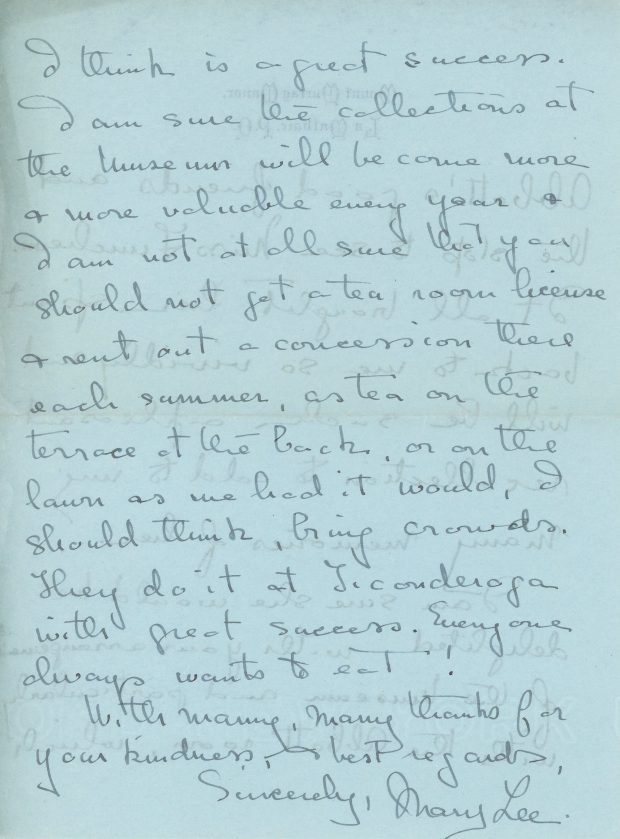 I think is a great success.
I am sure the collections at
the Museum will become more
& more valuable every year &
I am not at all sure that you
should not get a tea room license
& rent out a concession there
each summer, as tea on the
terrace at the back, or on the
lawn as we had it would, I
should think, bring crowds.
They do it at Ticonderoga
with great success. Everyone
always wants to eat!
With many, many thanks for
your kindness, & best regards,
Sincerely, Mary Lee.